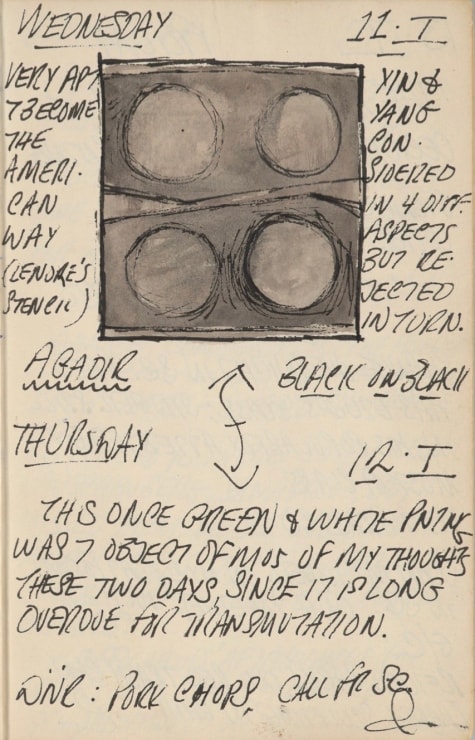 WEDNESDAY 11·I
VERY APT
7 BECOME
THE
AMERI-
CAN
WAY
(LENORE'S
STENCIL)
YIN &
YANG
CON-
SIDERED
IN 4 DIFF.
ASPECTS
BUT RE-
JECTED
IN TURN.
AGADIR
BLACK ON BLACK
THURSDAY 12·I
THS ONCE GREEN & WHITE PNTNG
WAS 7 OBJECT OF MOS OF MY THOUGHTS
THESE TWO DAYS, SINCE IT IS LONG
OVERDUE FOR TRANSMUTATION.
DINR: PORK CHOPS, CALL FR SG.